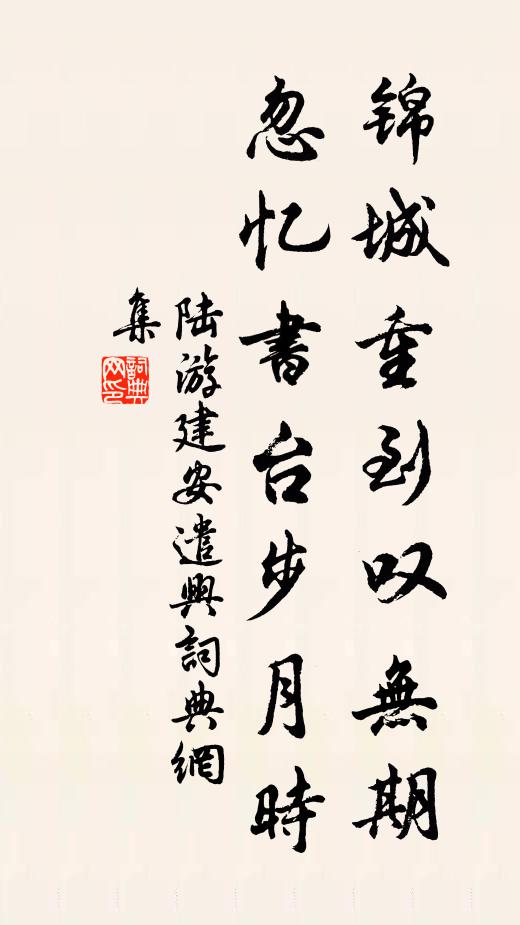 锦城重到叹無期
忽忆書台步月時
陆游建安遣興詞典網
集
詞典网印